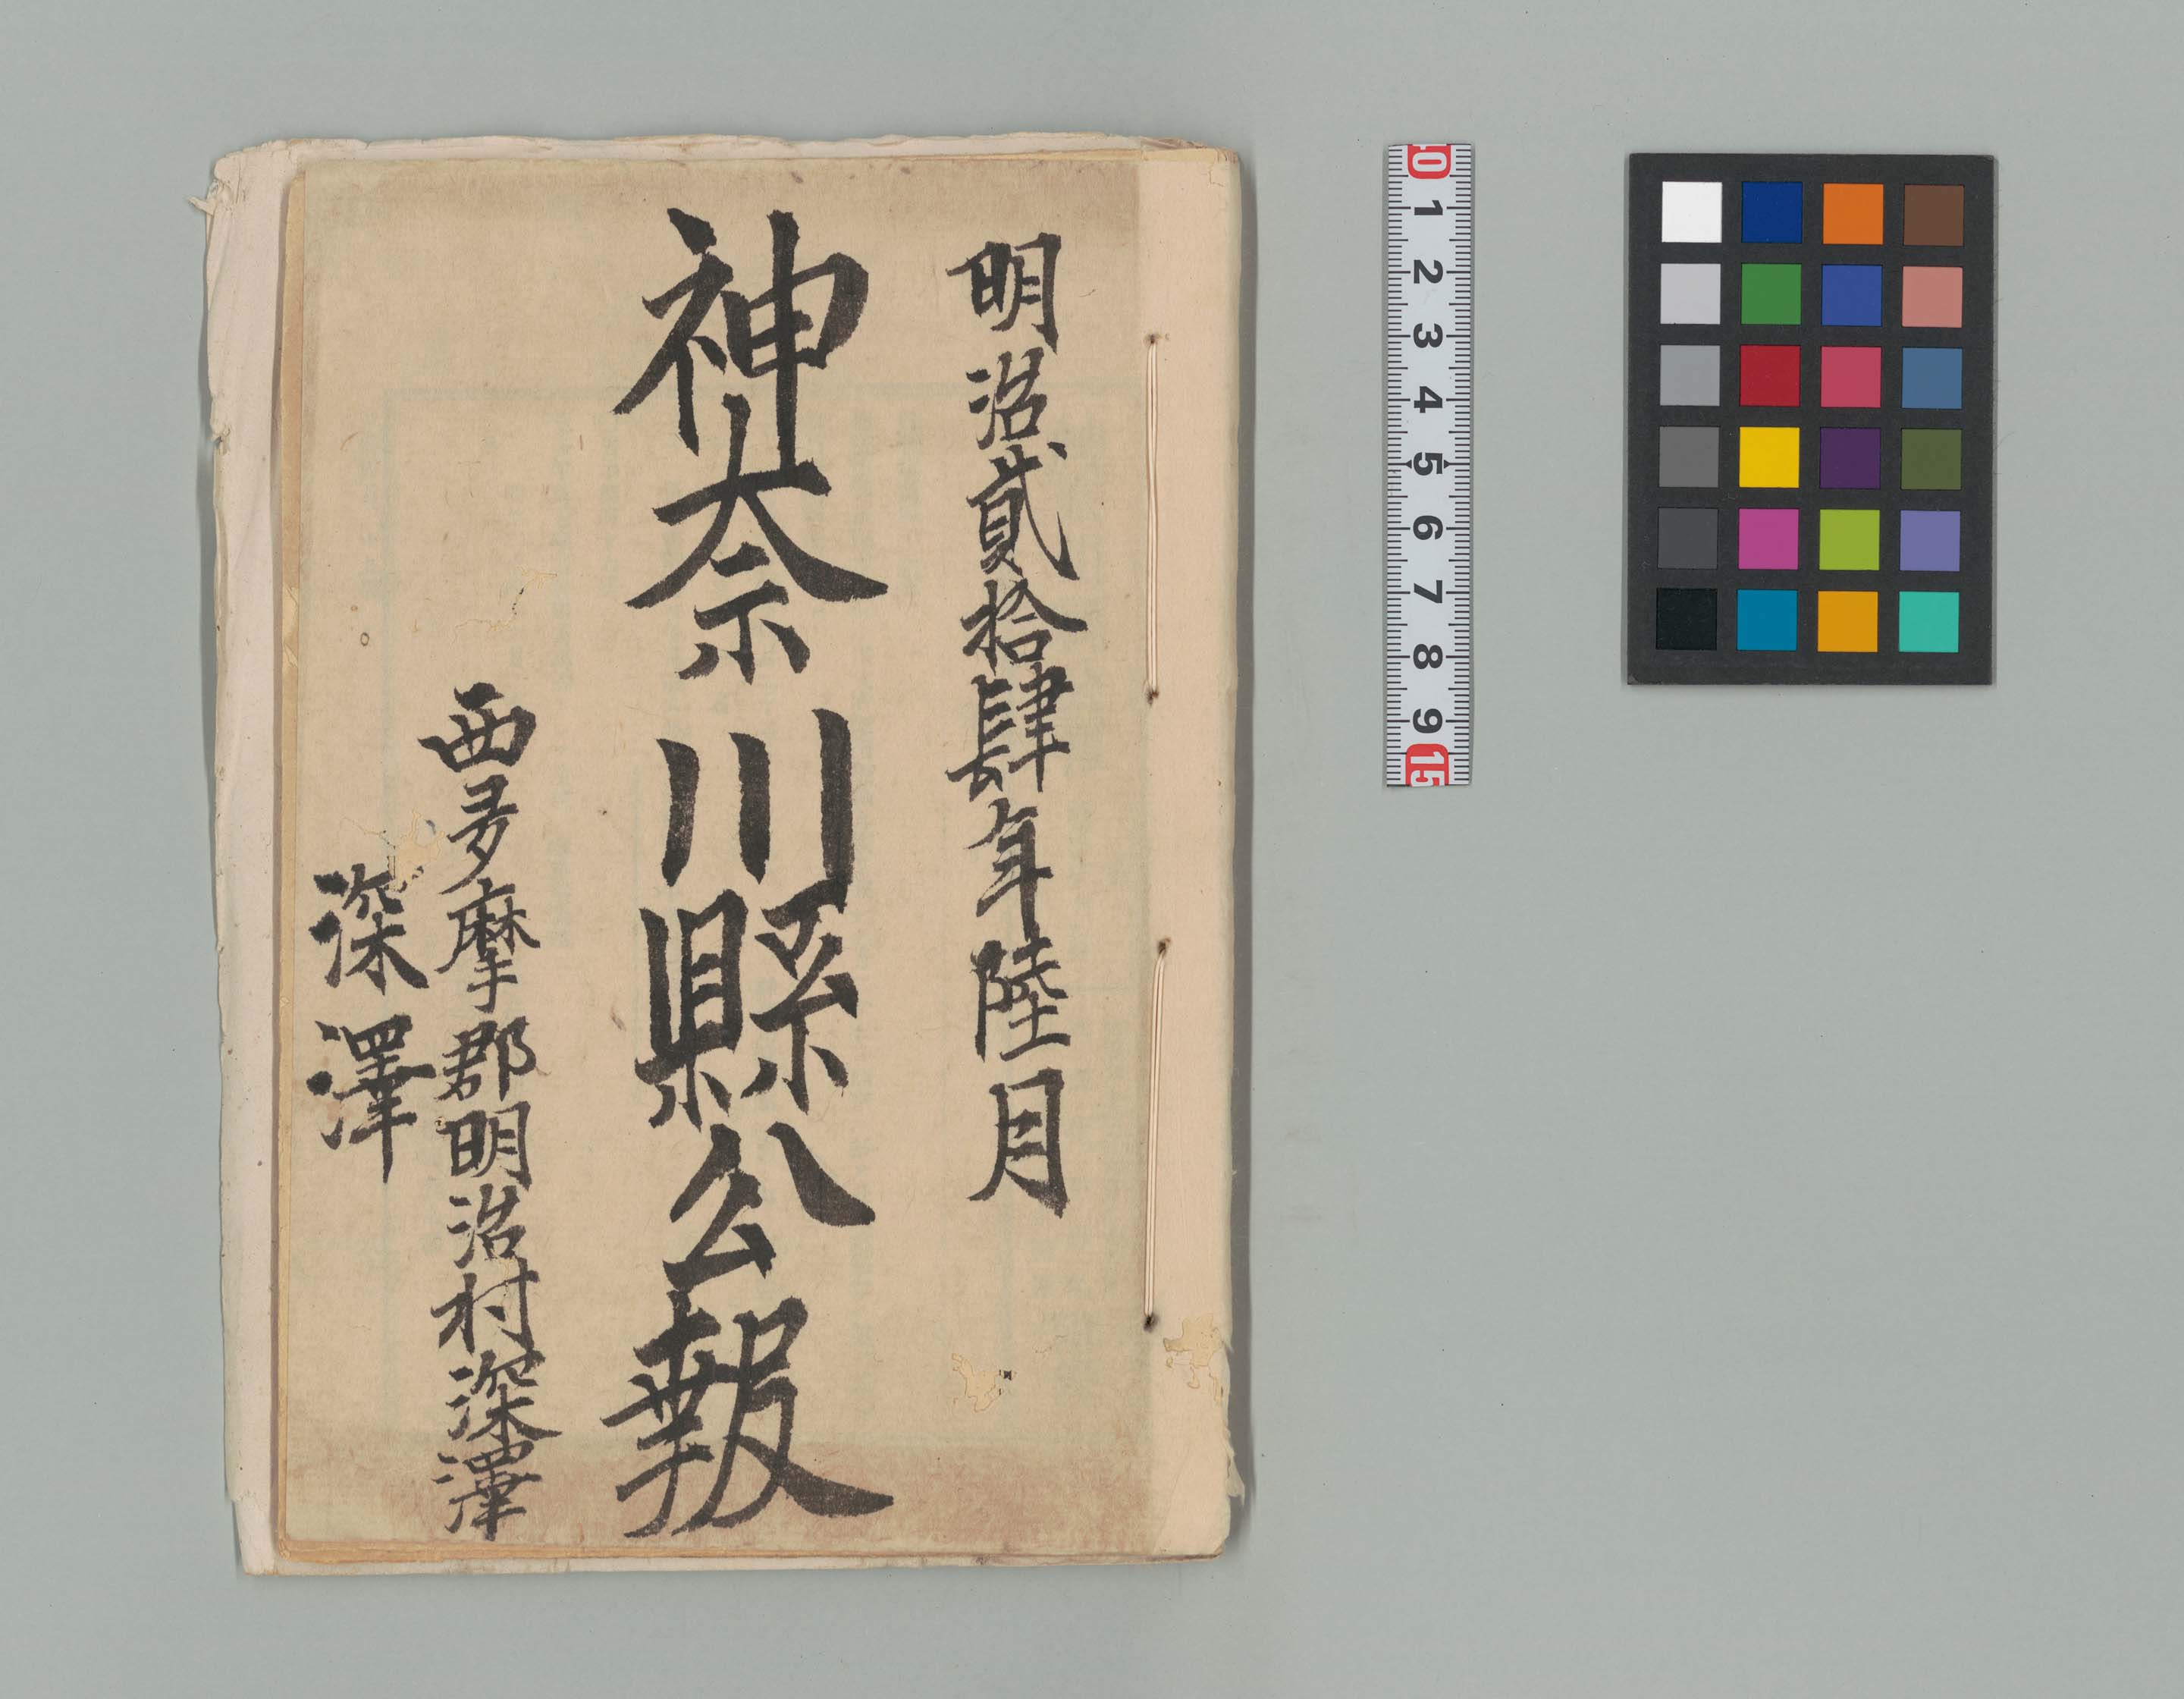 明治貳拾肆年陸月
神奈川縣公報
西多摩郡明治村深澤
深澤
0 1 2 3 4 5 6 7 8 9 15